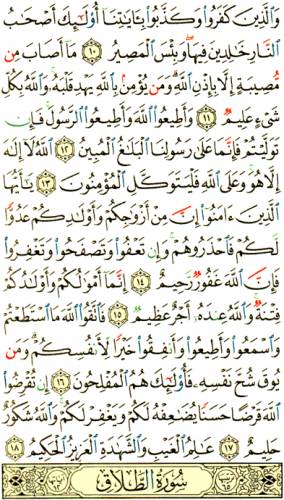 وَٱلَّذِينَ كَفَرُوا۟ وَكَذَّبُوا۟ بِـَٔايَٰتِنَآ أُو۟لَٰٓئِكَ أَصْحَٰبُ
ٱلنَّارِ خَٰلِدِينَ فِيهَا وَبِئْسَ ٱلْمَصِيرُ ١٠ مَآ أَصَابَ مِن
مُّصِيبَةٍ إِلَّا بِإِذْنِ ٱللَّهِ وَمَن يُؤْمِنۢ بِٱللَّهِ يَهْدِ قَلْبَهُۥ وَٱللَّهُ بِكُلِّ
شَىْءٍ عَلِيمٌ ١١ وَأَطِيعُوا۟ ٱللَّهَ وَأَطِيعُوا۟ ٱلرَّسُولَ فَإِن
تَوَلَّيْتُمْ فَإِنَّمَا عَلَىٰ رَسُولِنَا ٱلْبَلَٰغُ ٱلْمُبِينُ ١٢ ٱللَّهُ لَآ إِلَٰهَ
إِلَّا هُوَ وَعَلَى ٱللَّهِ فَلْيَتَوَكَّلِ ٱلْمُؤْمِنُونَ ١٣ يَٰٓأَيُّهَا
ٱلَّذِينَ ءَامَنُوٓا۟ إِنَّ مِنْ أَزْوَٰجِكُمْ وَأَوْلَٰدِكُمْ عَدُوًّا
لَّكُمْ فَٱحْذَرُوهُمْ وَإِن تَعْفُوا۟ وَتَصْفَحُوا۟ وَتَغْفِرُوا۟
فَإِنَّ ٱللَّهَ غَفُورٌ رَّحِيمٌ ١٤ إِنَّمَآ أَمْوَٰلُكُمْ وَأَوْلَٰدُكُمْ
فِتْنَةٌ وَٱللَّهُ عِندَهُۥٓ أَجْرٌ عَظِيمٌ ١٥ فَٱتَّقُوا۟ ٱللَّهَ مَا ٱسْتَطَعْتُمْ
وَٱسْمَعُوا۟ وَأَطِيعُوا۟ وَأَنفِقُوا۟ خَيْرًا لِّأَنفُسِكُمْ وَمَن
يُوقَ شُحَّ نَفْسِهِۦ فَأُو۟لَٰٓئِكَ هُمُ ٱلْمُفْلِحُونَ ١٦ إِن تُقْرِضُوا۟
ٱللَّهَ قَرْضًا حَسَنًا يُضَٰعِفْهُ لَكُمْ وَيَغْفِرْ لَكُمْ وَٱللَّهُ شَكُورٌ
حَلِيمٌ ١٧ عَٰلِمُ ٱلْغَيْبِ وَٱلشَّهَٰدَةِ ٱلْعَزِيزُ ٱلْحَكِيمُ ١٨
سُورَةُ ٱلطَّلَاقِ